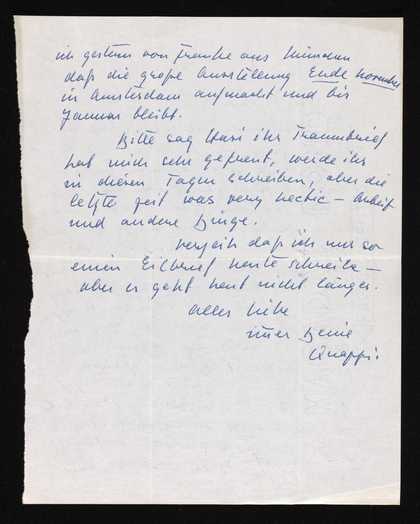 ich gestern von Franke aus München
daß die große Ausstellung Ende November
in Amsterdam aufmacht und bis
Januar bleibt.
Bitte sag Hasi ihr Traumbrief
hat mich sehr gefreut, werde ihr
in diesen Tagen schreiben, aber die
letzte Zeit was very hectic – Arbeit
und andere Dinge.
Verzeih daß ich nur so
einen Eilbrief heute schreibe –
aber es geht heut nicht länger.
Alles Liebe
immer Deine
Quappi.